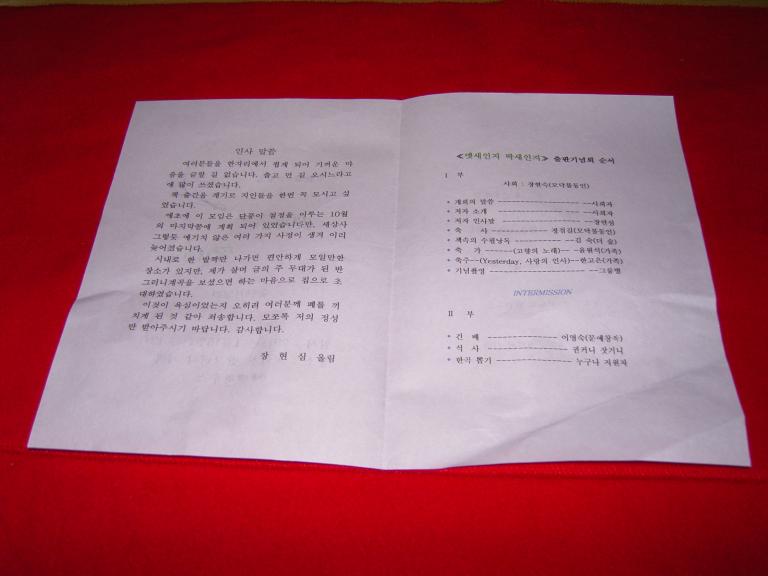 인사 말씀
여러분들을 한자리에서 뵙게 되어 기꺼운 마
음을 금할 길 없습니다. 춥고 먼 길 오시느라고
애 많이 쓰셨습니다.
책 출간을 계기로 지인들을 한번 꼭 모시고 싶
었습니다.
애초에 이 모임은 단풍이 절정을 이루는 10월
의 마지막쯤에 계획 되어 있었습니다만, 세상사
그렇듯 예기치 않은 여러 가지 사정이 생겨 이리
늦어졌습니다.
시내로 한 발짝만 나가면 편안하게 모일만한
장소가 있지만, 제가 살며 글의 주 무대가 된 반
그리니계곡을 보셨으면 하는 마음으로 집으로 초
대하였습니다.
이것이 욕심이었는지 오히려 여러분께 폐를 끼
치게 된 것 같아 죄송합니다. 모쪼록 저의 정성
만 받아주시기 바랍니다. 감사합니다.
장 현 심 올림
≪옛새인지 박새인지≫ 출판기념회 순서
I 부
사회 : 장현수(모악물동인)
* 개회의 말씀 --------------------사회자
* 저자 소개 --------------------사회자
* 저자 인사말 --------------------장현심
* 축 사 ----------------정칠길(모악물동인)
* 책속의 수필낭독 ------------김 숙(더 숲)
* 축 가 -------(고향의 노래)-- -윤원석(가족)
* 축주--(Yesterday, 사랑의 인사)---한고은(가족)
* 기념촬영 ------------------------그룹별
INTERMISSION
II 부
* 건 배 -------------- 이영숙(문예창작)
* 식 사 ---------------- 권커니 잣거니
* 한곡 뽑기 ---------------- 누구나 지원자